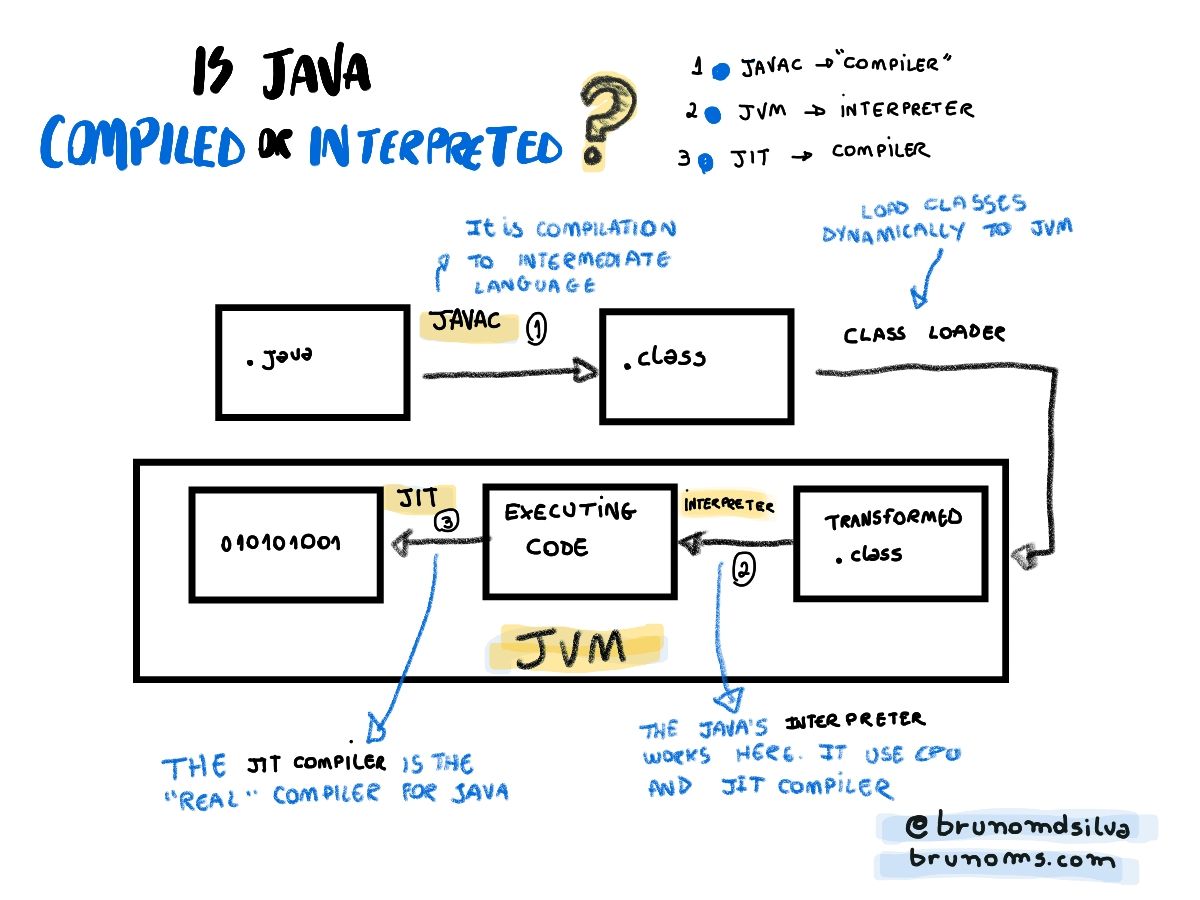 IS JAVA
COMPILED OR INTERPRETED ?
1 JAVAC → "COMPILER"
2 JVM → INTERPRETER
3 JIT → COMPILER
It is COMPILATION
TO INTERMEDIATE
LANGUAGE
LOAD CLASSES
DYNAMICALLY TO JVM
JAVAC 1
CLASS LOADER
.java
.class
JIT
3
INTERPRETER
2
EXECUTING
CODE
TRANSFORMED
.class
010101001
JVM
THE JIT COMPILER IS THE
"REAL" COMPILER FOR JAVA
THE JAVA'S INTERPRETER
WORKS HERE. IT USE CPU
AND JIT COMPILER
@brunomdsilva
brunoms.com